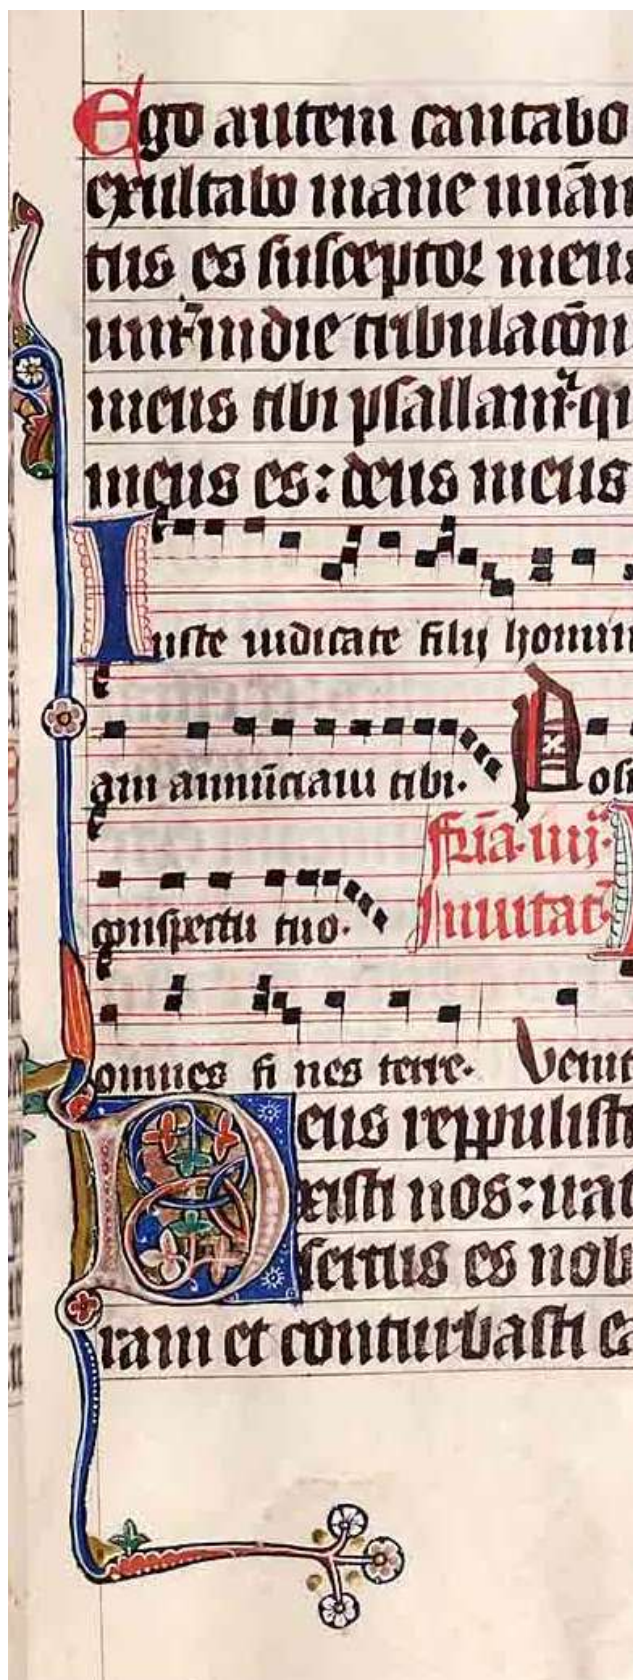 Ego autem cantabo
exultabo mane miām
tus es susceptor meus
um⁊ in die tribulacōn
meus tibi psallam⁊ qi
meus es: deus meus
Iuste iudicate filij homin
am annūciaui tibi. Posu
conspectu tuo. fria. iiij.
Inuitat
omnes fi nes terre. Venit
Deus reppulisti
xisti nos: mat
sertus es nob
ram et conturbasti ea